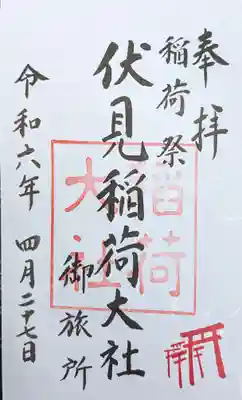 奉拝
稲荷祭
伏見稲荷大社
御旅所
令和六年 四月二十七日
稲荷
大社